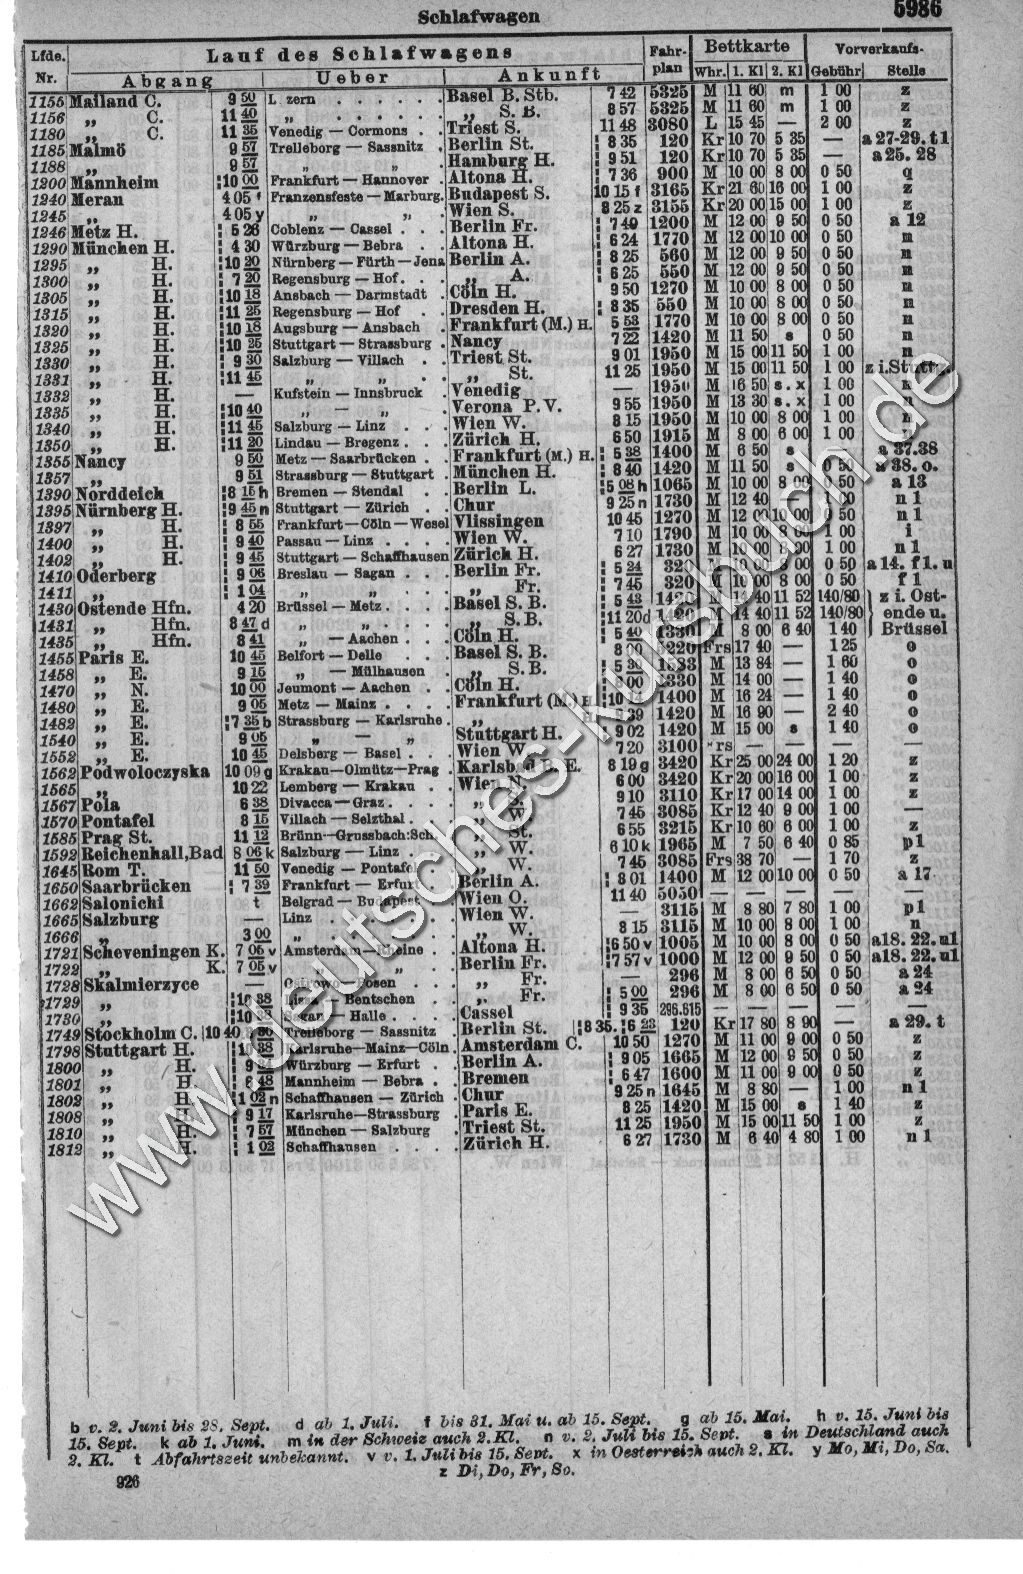 Schlafwagen
5986
Lfde. Nr. Lauf des Schlafwagens Fahrplan Bettkarte Vorverkaufs-
Abgang Ueber Ankunft Whr. 1. Kl 2. Kl Gebühr Stelle
1155 Mailand C. 9 50 zern Basel B. Stb. 7 42 5325 M 11 60 m 1 00 z
1156 „ C. 11 40 „ „ S. B. 8 57 5325 M 11 60 m 1 00 z
1180 „ C. 11 35 Venedig — Cormons Triest S. 11 48 3080 L 15 45 — 2 00 z
1185 Malmö 9 57 Trelleborg — Sassnitz Berlin St. 8 35 120 Kr 10 70 5 35 — a 27-29. t1
1188 „ 9 57 „ „ Hamburg H. 9 51 120 Kr 10 70 5 35 — a 25. 28
1200 Mannheim 10 00 Frankfurt — Hannover Altona H. 7 36 900 M 10 00 8 00 0 50 q
1240 Meran 4 05 f Franzensfeste — Marburg Budapest S. 10 15 f 3165 Kr 21 60 16 00 1 00 z
1245 „ 4 05 y „ „ Wien S. 8 25 z 3155 Kr 20 00 15 00 1 00 z
1246 Metz H. 5 26 Coblenz — Cassel Berlin Fr. 7 40 1200 M 12 00 9 50 0 50 a 12
1290 München H. 4 30 Würzburg — Bebra Altona H. 6 24 1770 M 12 00 10 00 0 50 n
1295 „ H. 10 20 Nürnberg — Fürth — Jena Berlin A. 8 25 560 M 12 00 9 50 0 50 n
1300 „ H. 7 20 Regensburg — Hof „ A. 6 25 550 M 12 00 9 50 0 50 n
1305 „ H. 10 18 Ansbach — Darmstadt Cöln H. 9 50 1270 M 10 00 8 00 0 50 n
1315 „ H. 11 25 Regensburg — Hof Dresden H. 8 35 550 M 10 00 8 00 0 50 n
1320 „ H. 10 18 Augsburg — Ansbach Frankfurt (M.) H. 5 53 1770 M 10 00 8 00 0 50 n
1325 „ H. 10 25 Stuttgart — Strassburg Nancy 7 22 1420 M 11 50 s 0 50 n
1330 „ H. 9 30 Salzburg — Villach Triest St. 9 01 1950 M 15 00 11 50 1 00 n
1331 „ H. 11 45 „ „ „ St. 11 25 1950 M 15 00 11 50 1 00 z i.
1332 „ H. — Kufstein — Innsbruck Venedig — 1950 M 16 50 s.x 1 00 n
1335 „ H. 10 40 „ — „ Verona P.V. 9 55 1950 M 13 30 s.x 1 00 n
1340 „ H. 11 45 Salzburg — Linz Wien W. 8 15 1950 M 10 00 8 00 1 00 n
1350 „ H. 11 20 Lindau — Bregenz Zürich H. 6 50 1915 M 8 00 6 00 1 00
1355 Nancy 9 50 Metz — Saarbrücken Frankfurt (M.) H. 5 38 1400 M 6 50 s 37.38
1357 „ 9 51 Strassburg — Stuttgart München H. 8 40 1420 M 11 50 s 0 50 a 38. o.
1390 Norddeich 8 15 h Bremen — Stendal Berlin L. 5 08 h 1065 M 10 00 8 00 0 50 a 13
1395 Nürnberg H. 9 45 n Stuttgart — Zürich Chur 9 25 n 1730 M 12 40 n 1
1397 „ H. 8 55 Frankfurt—Cöln—Wesel Vlissingen 10 45 1270 M 12 00 10 00 0 50 n 1
1400 „ H. 9 40 Passau — Linz Wien W. 7 10 1790 M 10 00 8 00 1 00 i
1402 „ H. 9 45 Stuttgart — Schaffhausen Zürich H. 6 27 1730 M 10 00 8 00 1 00 n 1
1410 Oderberg 9 06 Breslau — Sagan Berlin Fr. 5 24 10 00 8 00 0 50 a 14. f 1. u
1411 „ 1 04 „ „ „ Fr. 7 45 320 M 10 00 8 00 0 50 f 1
1430 Ostende Hfn. 4 20 Brüssel — Metz Basel S. B. 5 43 40 11 52 140/80 z i. Ost-
1431 „ Hfn. 8 47 d „ „ „ S. B. 11 20 d M 14 40 11 52 140/80 ende u.
1435 „ Hfn. 8 41 „ — Aachen Cöln H. 5 40 8 00 6 40 1 40 Brüssel
1455 Paris E. 10 45 Belfort — Delle Basel S. B. 8 00 5220 Frs 17 40 — 1 25 o
1458 „ E. 9 15 „ — Mülhausen „ S. B. M 13 84 — 1 60 o
1470 „ N. 10 00 Jeumont — Aachen Cöln H. M 14 00 — 1 40 o
1480 „ E. 9 05 Metz — Mainz Frankfurt (M.) H 1400 M 16 24 — 1 40 o
1482 „ E. 7 35 b Strassburg — Karlsruhe „ 1420 M 16 90 — 2 40 o
1540 „ E. 9 05 „ — „ Stuttgart H. 9 02 1420 M 15 00 s 1 40 o
1552 „ E. 10 45 Delsberg — Basel Wien W. 7 20 3100 — — — —
1562 Podwoloczyska 10 09 g Krakau—Olmütz—Prag Karlsbad E. 8 19 g 3420 Kr 25 00 24 00 1 20 z
1565 „ 10 22 Lemberg — Krakau Wien N. 6 00 3420 Kr 20 00 16 00 1 00 z
1567 Pola 6 38 Divacca — Graz „ S. 9 10 3110 Kr 17 00 14 00 1 00 z
1570 Pontafel 8 15 Villach — Selzthal „ W. 7 45 3085 Kr 12 40 9 00 1 00 —
1585 Prag St. 11 12 Brünn—Grussbach:Sch. „ St. 6 55 3215 Kr 10 60 6 00 1 00 z
1592 Reichenhall, Bad 8 06 k Salzburg — Linz „ W. 6 10 k 1965 M 7 50 6 40 0 85 p1
1645 Rom T. 11 50 Venedig — „ W. 7 45 3085 Frs 38 70 — 1 70 z
1650 Saarbrücken 7 39 Frankfurt — Erfurt Berlin A. 8 01 1400 M 12 00 10 00 0 50 a 17
1662 Salonichi t Belgrad — Budapest Wien O. 11 40 5050 — — — —
1665 Salzburg — Linz Wien W. — 3115 M 8 80 7 80 1 00 p1
1666 „ 3 00 „ „ W. 8 15 3115 M 10 00 8 00 1 00 n
1721 Scheveningen K. 7 05 v Amsterdam—Rheine Altona H. 6 50 v 1005 M 10 00 8 00 0 50 a18. 22. u1
1722 „ K. 7 05 v „ Berlin Fr. 7 57 v 1000 M 12 00 9 50 0 50 a18. 22. u1
1728 Skalmierzyce — Ostrowo — Posen „ Fr. — 296 M 8 00 6 50 0 50 a 24
1729 „ 10 38 Lissa — Bentschen „ Fr. 5 00 296 M 8 00 6 50 0 50 a 24
1730 „ Sagan — Halle Cassel 9 35 296.515 — — — —
1749 Stockholm C. Trelleborg — Sassnitz Berlin St. 8 35. 6 23 120 Kr 17 80 8 90 — a 29. t
1798 Stuttgart H. Karlsruhe—Mainz—Cöln Amsterdam C. 10 50 1270 M 11 00 9 00 0 50 z
1800 „ H. Würzburg — Erfurt Berlin A. 9 05 1665 M 12 00 9 50 0 50 z
1801 „ H. 6 48 Mannheim — Bebra Bremen 6 47 1600 M 11 00 9 00 0 50 z
1802 „ H. 1 02 n Schaffhausen — Zürich Chur 9 25 n 1645 M 8 80 — 1 00 n 1
1808 „ H. 9 17 Karlsruhe—Strassburg Paris E. 8 25 1420 M 15 00 s 1 40 z
1810 „ H. 7 57 München — Salzburg Triest St. 11 25 1950 M 15 00 11 50 1 00 z
1812 „ H. 1 02 Schaffhausen Zürich H. 6 27 1730 M 6 40 4 80 1 00 n 1
b v. 2. Juni bis 28. Sept. d ab 1. Juli. f bis 31. Mai u. ab 15. Sept. g ab 15. Mai. h v. 15. Juni bis
15. Sept. k ab 1. Juni. m in der Schweiz auch 2. Kl. n v. 2. Juli bis 15. Sept. s in Deutschland auch
2. Kl. t Abfahrtszeit unbekannt. v v. 1. Juli bis 15. Sept. x in Oesterreich auch 2. Kl. y Mo, Mi, Do, Sa.
z Di, Do, Fr, So.
926
www.deutsches-kursbuch.de